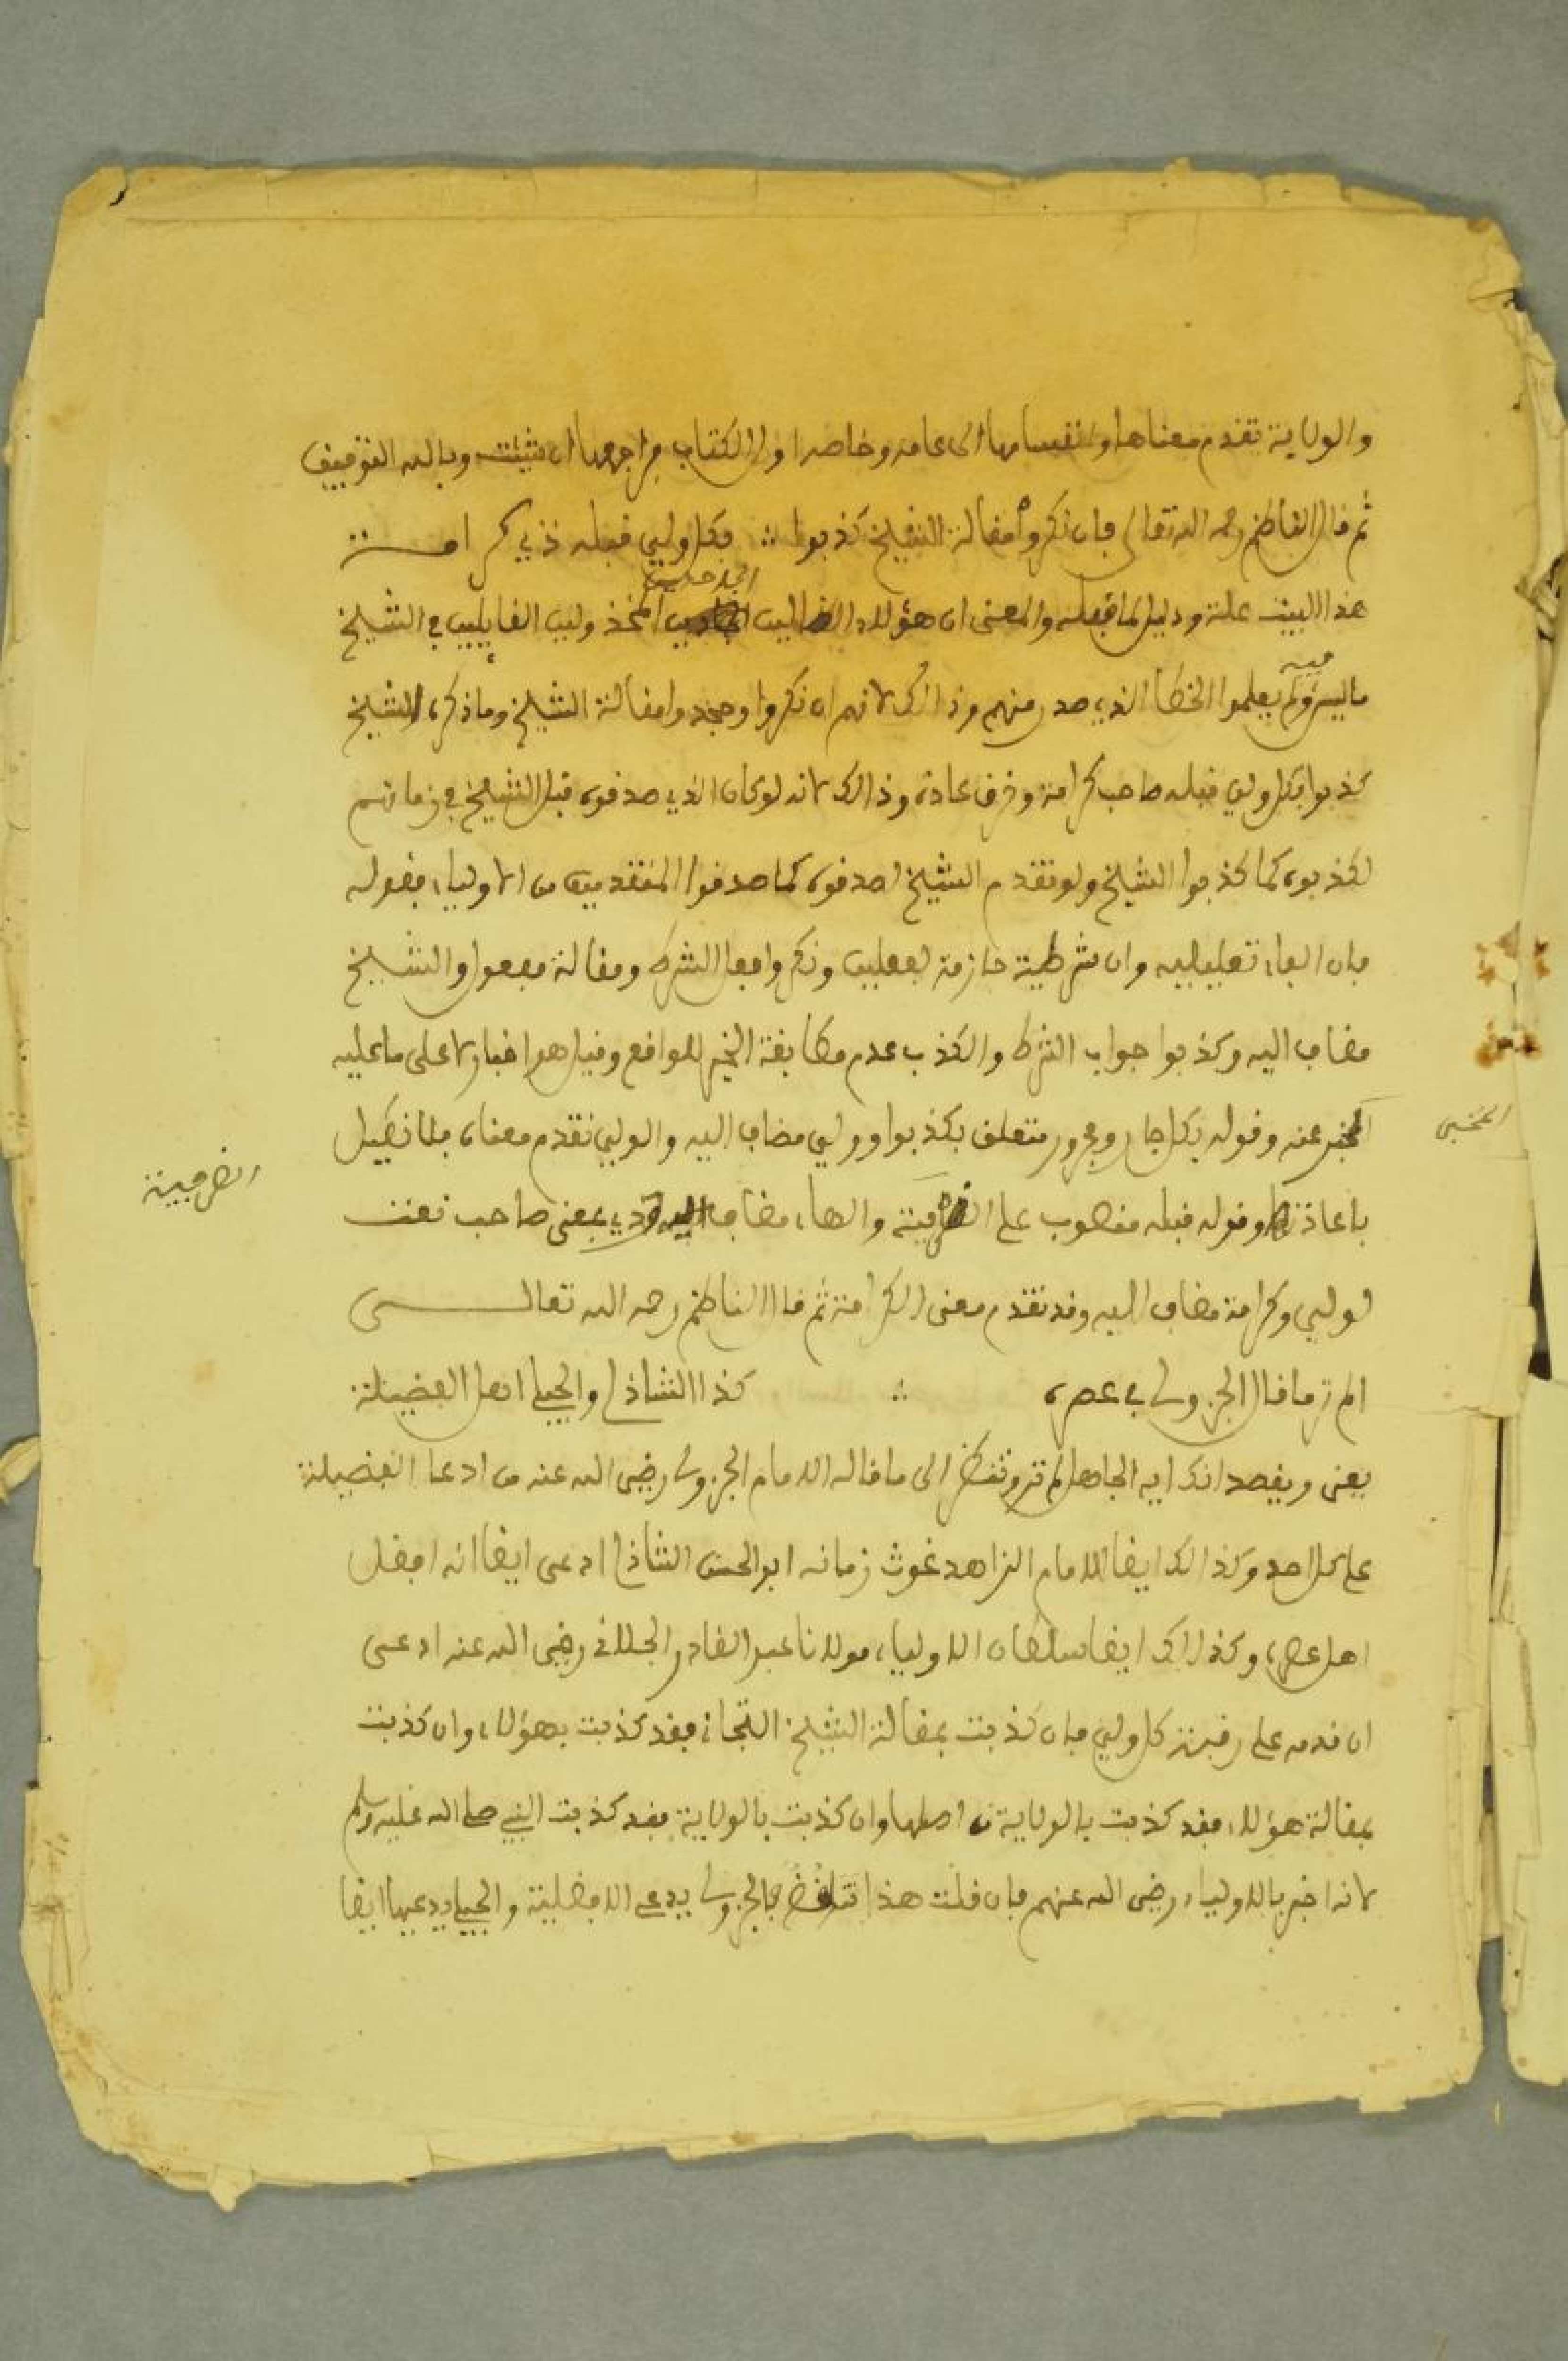 والولاية تقدم معناها وانقسامها الى عامة وخاصة اول الكتاب فراجعها ان شئت وبالله التوفيق
ثم قال الناظم رحمه الله تعالى فان نكروا مقالة الشيخ كذبوا ∴ بكل ولي قبله ذي كرامة
هذا البيت علة ودليل لما قبله والمعنى ان هؤلاء الضالين الجاحدين المخذولين القايلين في الشيخ
ما ليس فيه ولم يعلموا الخطأ الذي صدر منهم وذالك لانهم ان نكروا وجحدوا مقالة الشيخ وما ذكره الشيخ
كذبوا بكل ولي قبله صاحب كرامة وخرق عادة وذالك لانه لو كان الذي صدقوه قبل الشيخ في زمانهم
لكذبوه كما كذبوا الشيخ ولو تقدم الشيخ لصدقوه كما صدقوا المتقدمين من الاولياء فقوله
فان الفاء تعليليه وان شرطية جازمة لفعلين ونكروا فعل الشرط ومقالة مفعول والشيخ
مضاف اليه وكذبوا جواب الشرط والكذب عدم مطابقة الخبر للواقع وقيل هو اخبار لا على ما عليه
المخبر عنه وقوله بكل جار ومجرور متعلق بكذبوا وولي مضاف اليه والولي تقدم معناه فلا نطيل
المخبر
باعادته وقوله قبله منصوب على الظرفية والهاء مضاف اليه وذي بمعنى صاحب نعت
الظرفية
لولي وكرامة مضاف اليه وقد تقدم معنى الكرامة ثم قال الناظم رحمه الله تعالى
الم تر ما قال الجزولي في عصره ∴ كذا الشاذلي والجيلي اهل الفضيلة
يعنى ويقصد انك ايه الجاهل لم تر وتنظر الى ما قاله الامام الجزولي رضي الله عنه من ادعا الفضيلة
على كل احد وكذالك ايضا الامام الزاهد غوث زمانه ابو الحسن الشاذلي ادعى ايضا انه افضل
اهل عصره وكذالك ايضا سلطان الاولياء مولانا عبد القادر الجلاني رضي الله عنه ادعى
ان قدمه على رقبة كل ولي فان كذبت بمقالة الشيخ التجاني فقد كذبت بهؤلاء وان كذبت
بمقالة هؤلاء فقد كذبت بالولاية من اصلها وان كذبت بالولاية فقد كذبت النبي صلى الله عليه وسلم
لانه اخبر بالاولياء رضي الله عنهم فان قلت هذا تناقض فالجزولي يدعي الافضلية والجيلي يدعيها ايضا